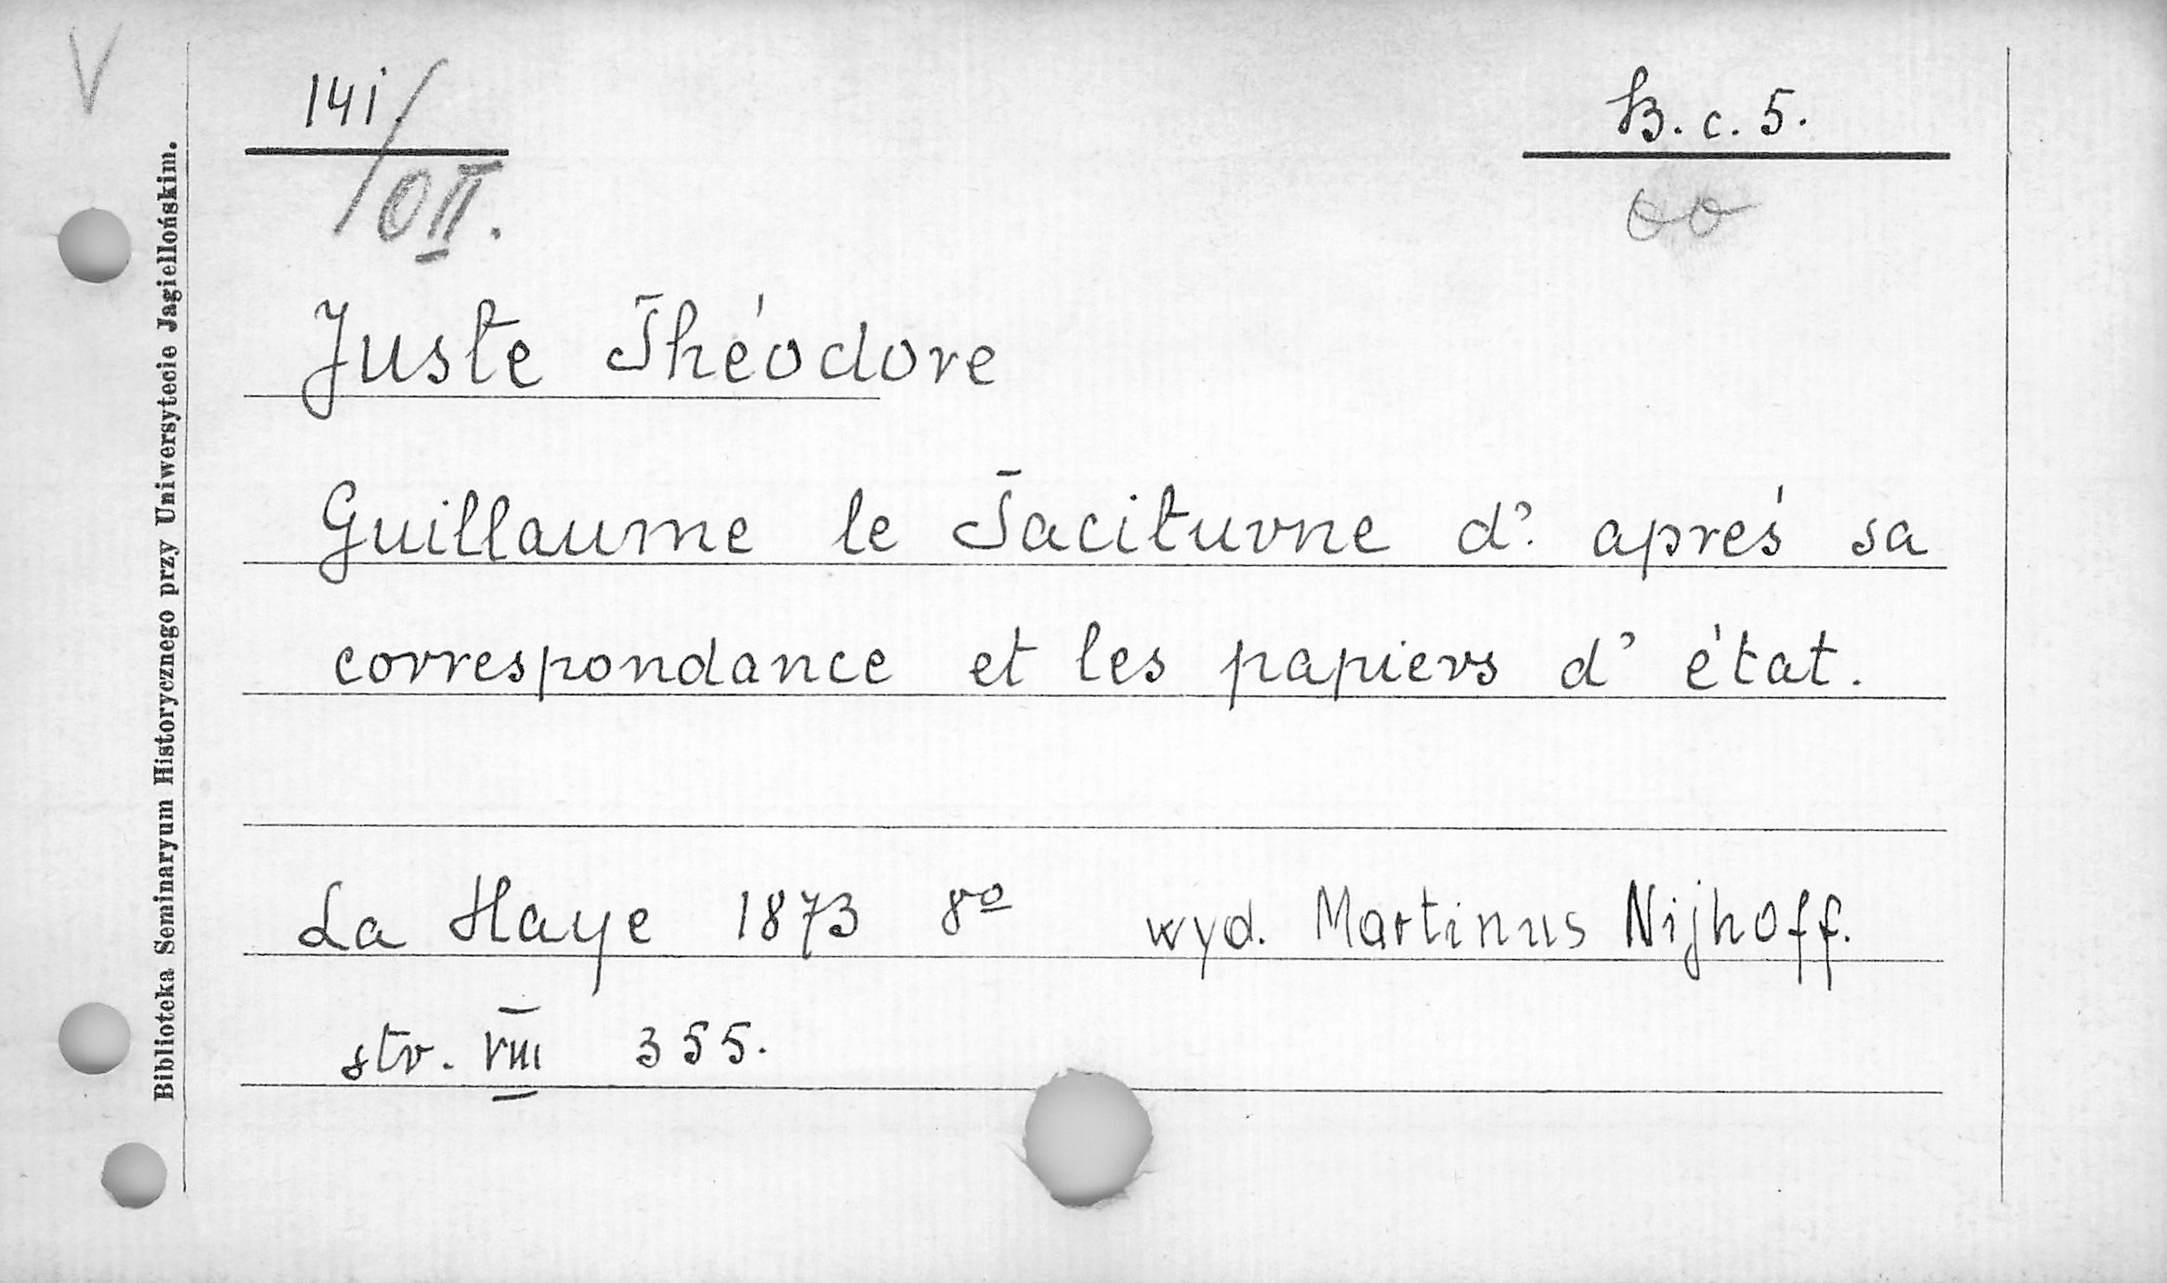 V
141.
B. c. 5.
/OII.
Juste Théodore
Guillaume le Taciturne d'. aprés sa
correspondance et les papiers d' état.
La Haye 1873 8º wyd. Martinus Nijhoff.
str. VIII 355.
Biblioteka Seminaryum Historycznego przy Uniwersytecie Jagiellońskim.